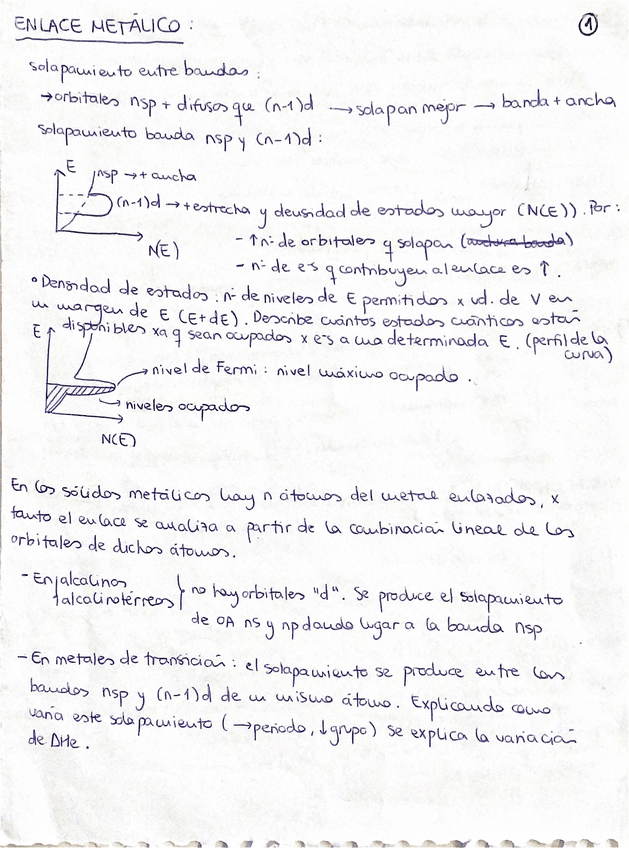 ENLACE METÁLICO :
1
solapamiento entre bandas :
→ orbitales nsp + difusos que (n-1)d → solapan mejor → banda + ancha
solapamiento banda nsp y (n-1)d :
E
nsp → + ancha
(n-1)d → + estrecha y densidad de estados mayor (N(E)). Por :
- ↑ nº de orbitales q solapan (anchura banda)
N(E)
- nº de e-s q contribuyen al enlace es ↑ .
° Densidad de estados : nº de niveles de E permitidos x ud. de V en
un margen de E (E+dE). Describe cuántos estados cuánticos están
disponibles xa q sean ocupados x e-s a una determinada E. (perfil de la
curva)
E
nivel de Fermi : nivel máximo ocupado .
niveles ocupados
N(E)
En los sólidos metálicos hay n átomos del metal enlazados, x
tanto el enlace se analiza a partir de la combinación lineal de los
orbitales de dichos átomos.
- En alcalinos
alcalinotérreos
no hay orbitales "d". Se produce el solapamiento
de OA ns y np dando lugar a la banda nsp
- En metales de transición : el solapamiento se produce entre las
bandas nsp y (n-1)d de un mismo átomo. Explicando como
varía este solapamiento ( → periodo, ↓ grupo) se explica la variación
de ΔHe .